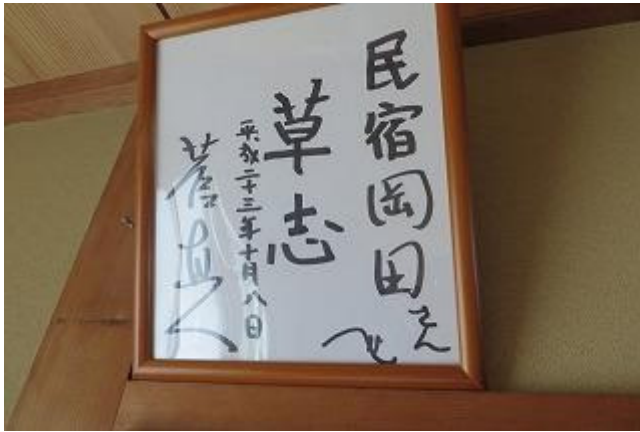 民宿岡田さん
草志
平成二十三年十月八日
菅直人